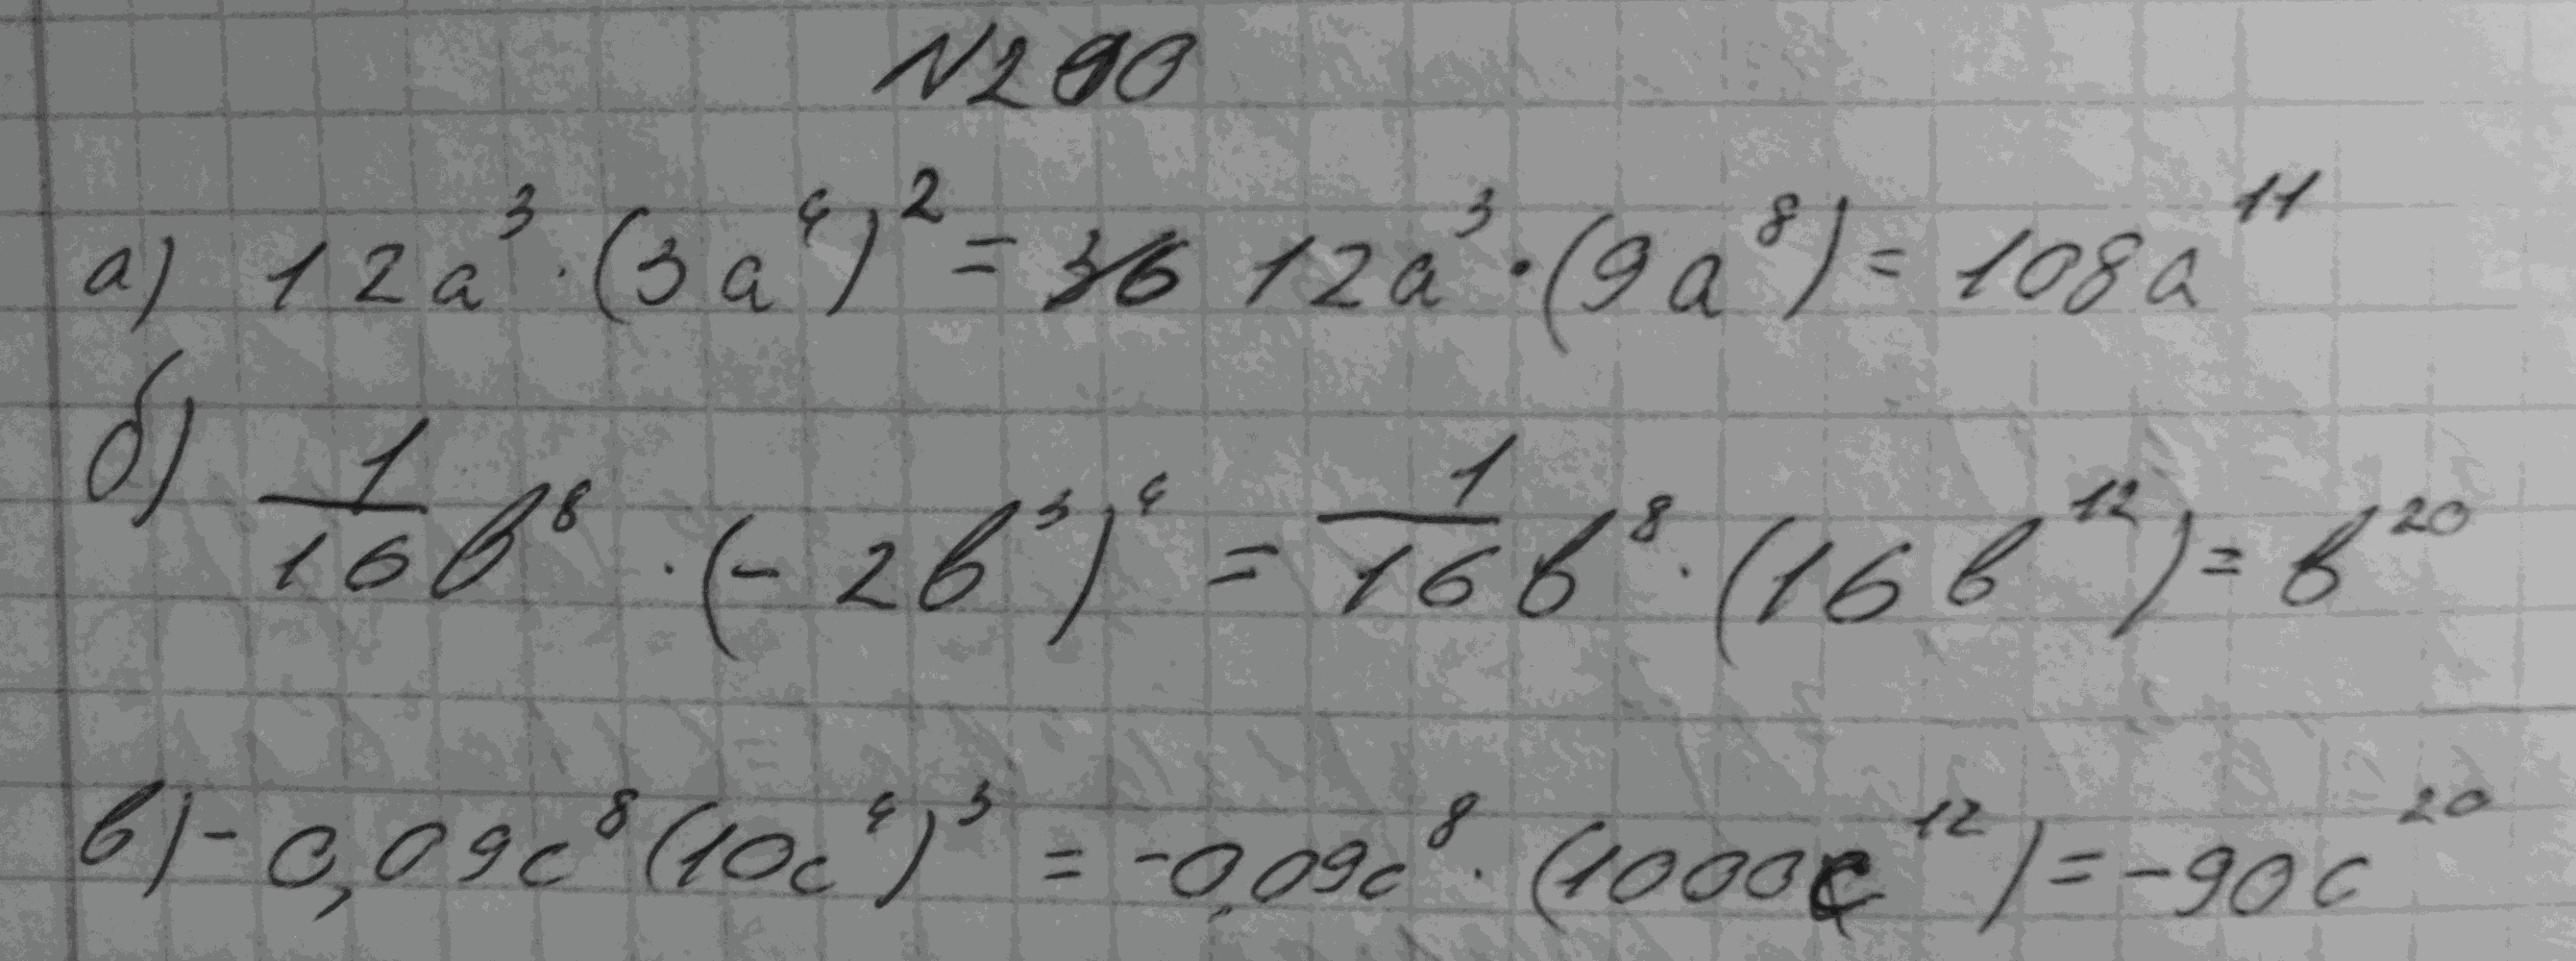 №290
а) 12a³·(3a⁴)² = 12a³·(9a⁸) = 108a¹¹
б) 1/16 b⁸·(-2b³)⁴ = 1/16 b⁸·(16b¹²) = b²⁰
в) -0,09c⁸(10c⁴)³ = -0,09c⁸·(1000c¹²) = -90c²⁰